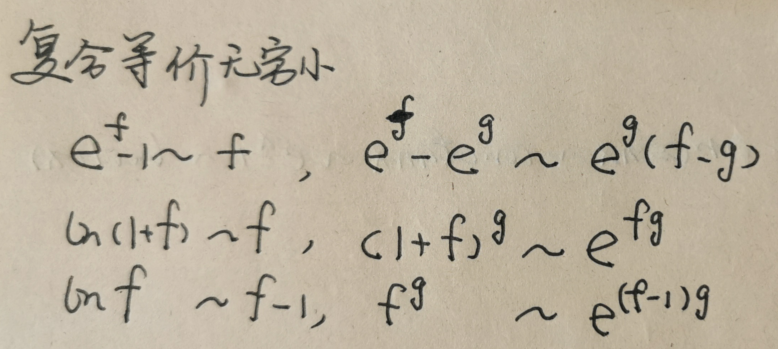 复合等价无穷小
e^f-1~f, e^f-e^g~e^g(f-g)
ln(1+f)~f, (1+f)^g~e^{fg}
lnf ~f-1, f^g ~e^{(f-1)g}